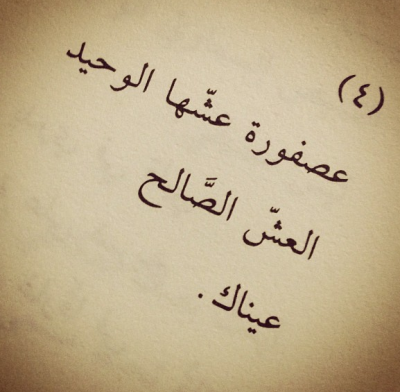 (٤)
عصفورة عشّها الوحيد
العشّ الصَّالح
عيناك.